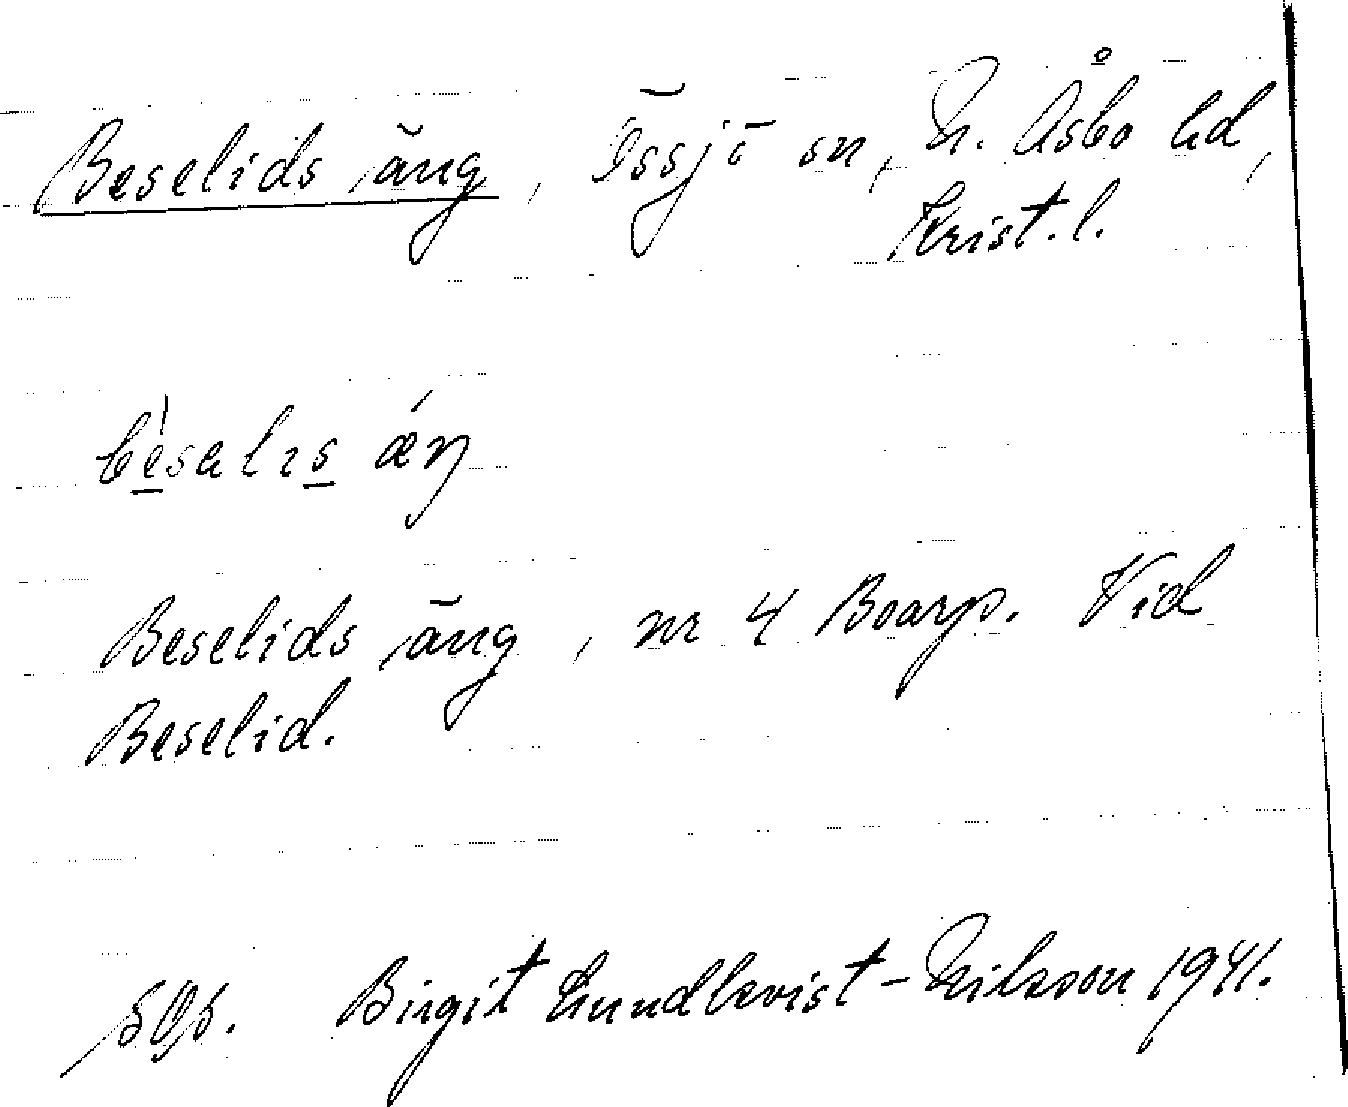 Beselids äng, Össjö sn, N. Åsbo hd,
Krist. l.
bèsalıs áŋ
Beselids äng, nr 4 Boarp. Vid
Beselid.
Birgit Lundkvist-Nilsson 1941.